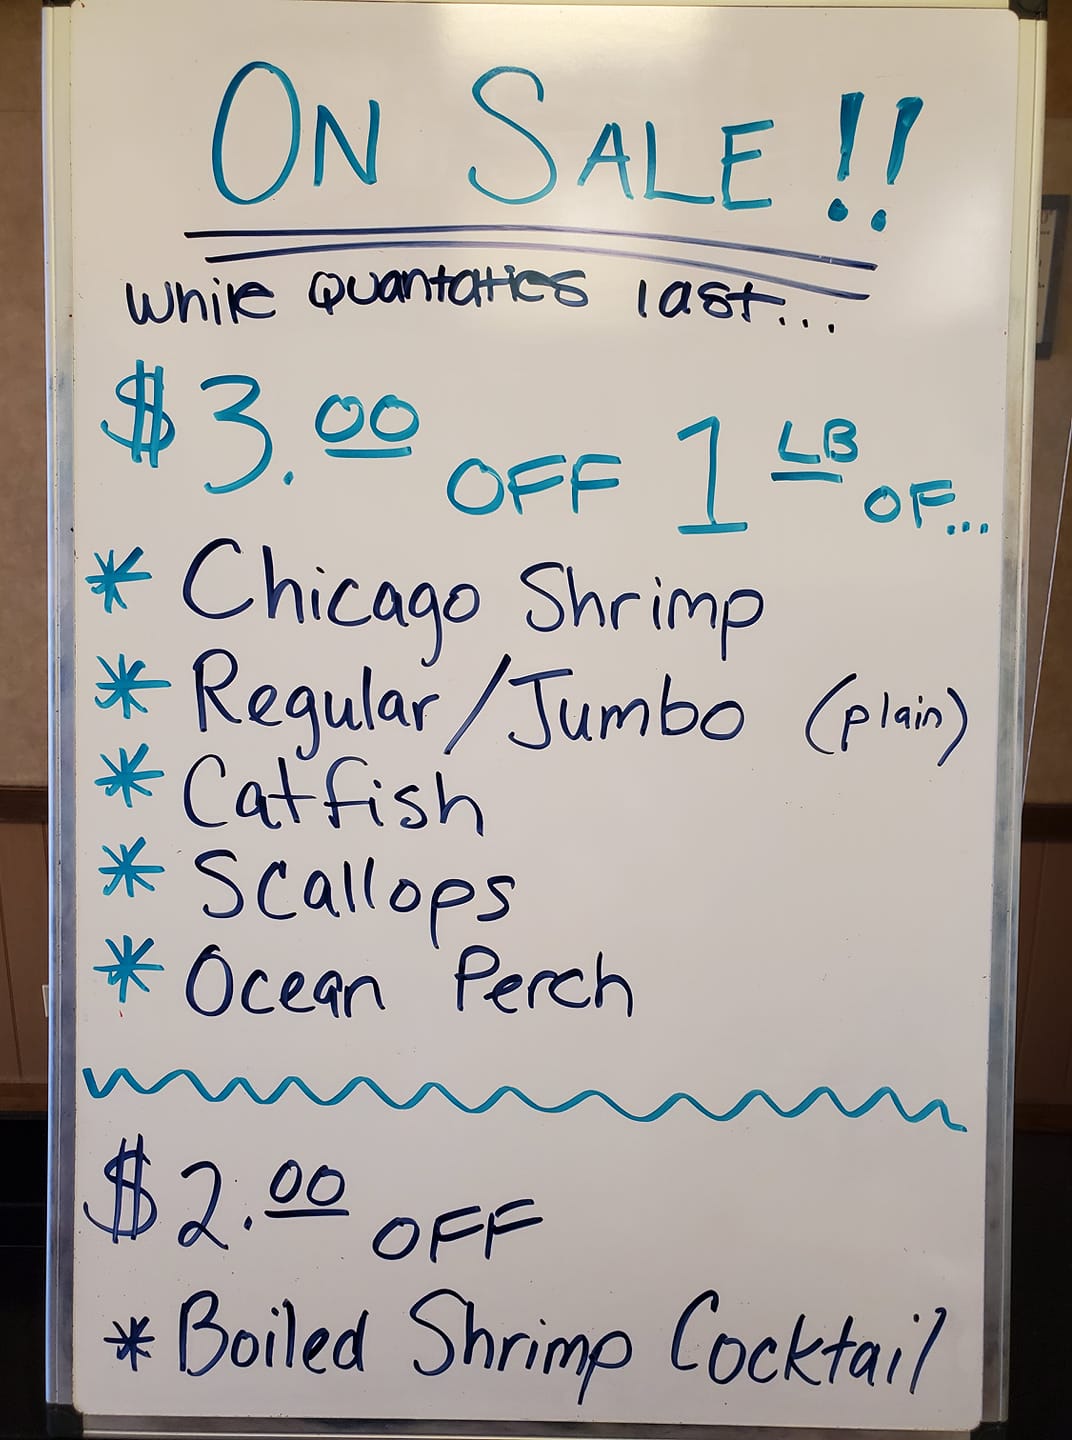 ON SALE!!
While Quantaties last...
$3.00 OFF 1 LB OF...
* Chicago Shrimp
* Regular/Jumbo (plain)
* Catfish
* Scallops
* Ocean Perch
$2.00 OFF
* Boiled Shrimp Cocktail